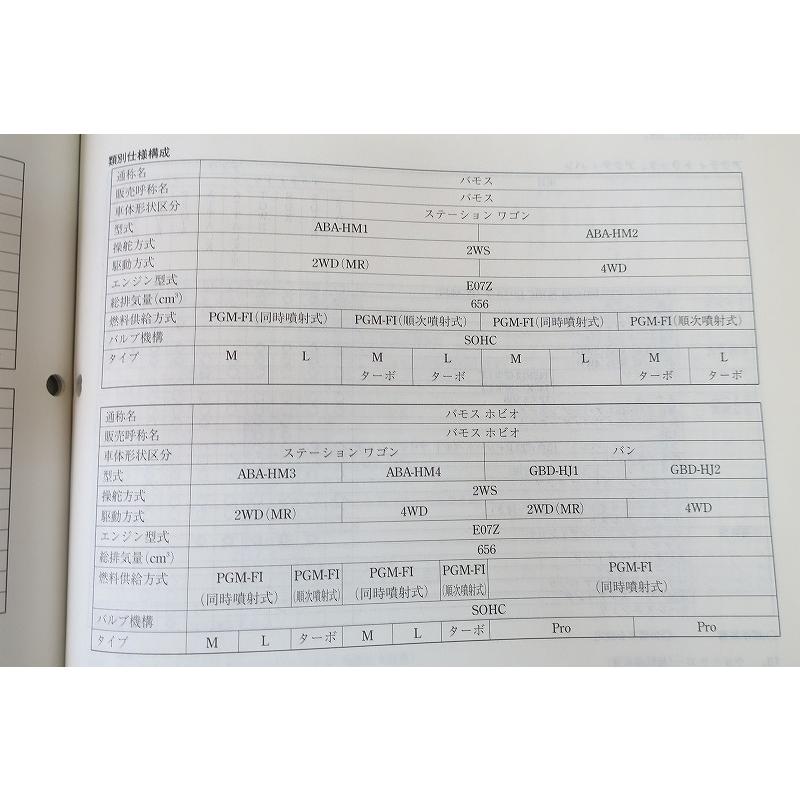 類別仕様構成
通称名 バモス
販売呼称名 バモス
車体形状区分 ステーション ワゴン
型式 ABA-HM1 ABA-HM2
操舵方式 2WS
駆動方式 2WD(MR) 4WD
エンジン型式 E07Z
総排気量(cm³) 656
燃料供給方式 PGM-FI(同時噴射式) PGM-FI(順次噴射式) PGM-FI(同時噴射式) PGM-FI(順次噴射式)
バルブ機構 SOHC
タイプ M L M L M L M L
ターボ ターボ ターボ ターボ
通称名 バモス ホビオ
販売呼称名 バモス ホビオ
車体形状区分 ステーション ワゴン バン
型式 ABA-HM3 ABA-HM4 GBD-HJ1 GBD-HJ2
操舵方式 2WS
駆動方式 2WD(MR) 4WD 2WD(MR) 4WD
エンジン型式 E07Z
総排気量(cm³) 656
燃料供給方式 PGM-FI PGM-FI PGM-FI PGM-FI PGM-FI
(同時噴射式) (順次噴射式) (同時噴射式) (順次噴射式) (同時噴射式)
バルブ機構 SOHC
タイプ M L ターボ M L ターボ Pro Pro